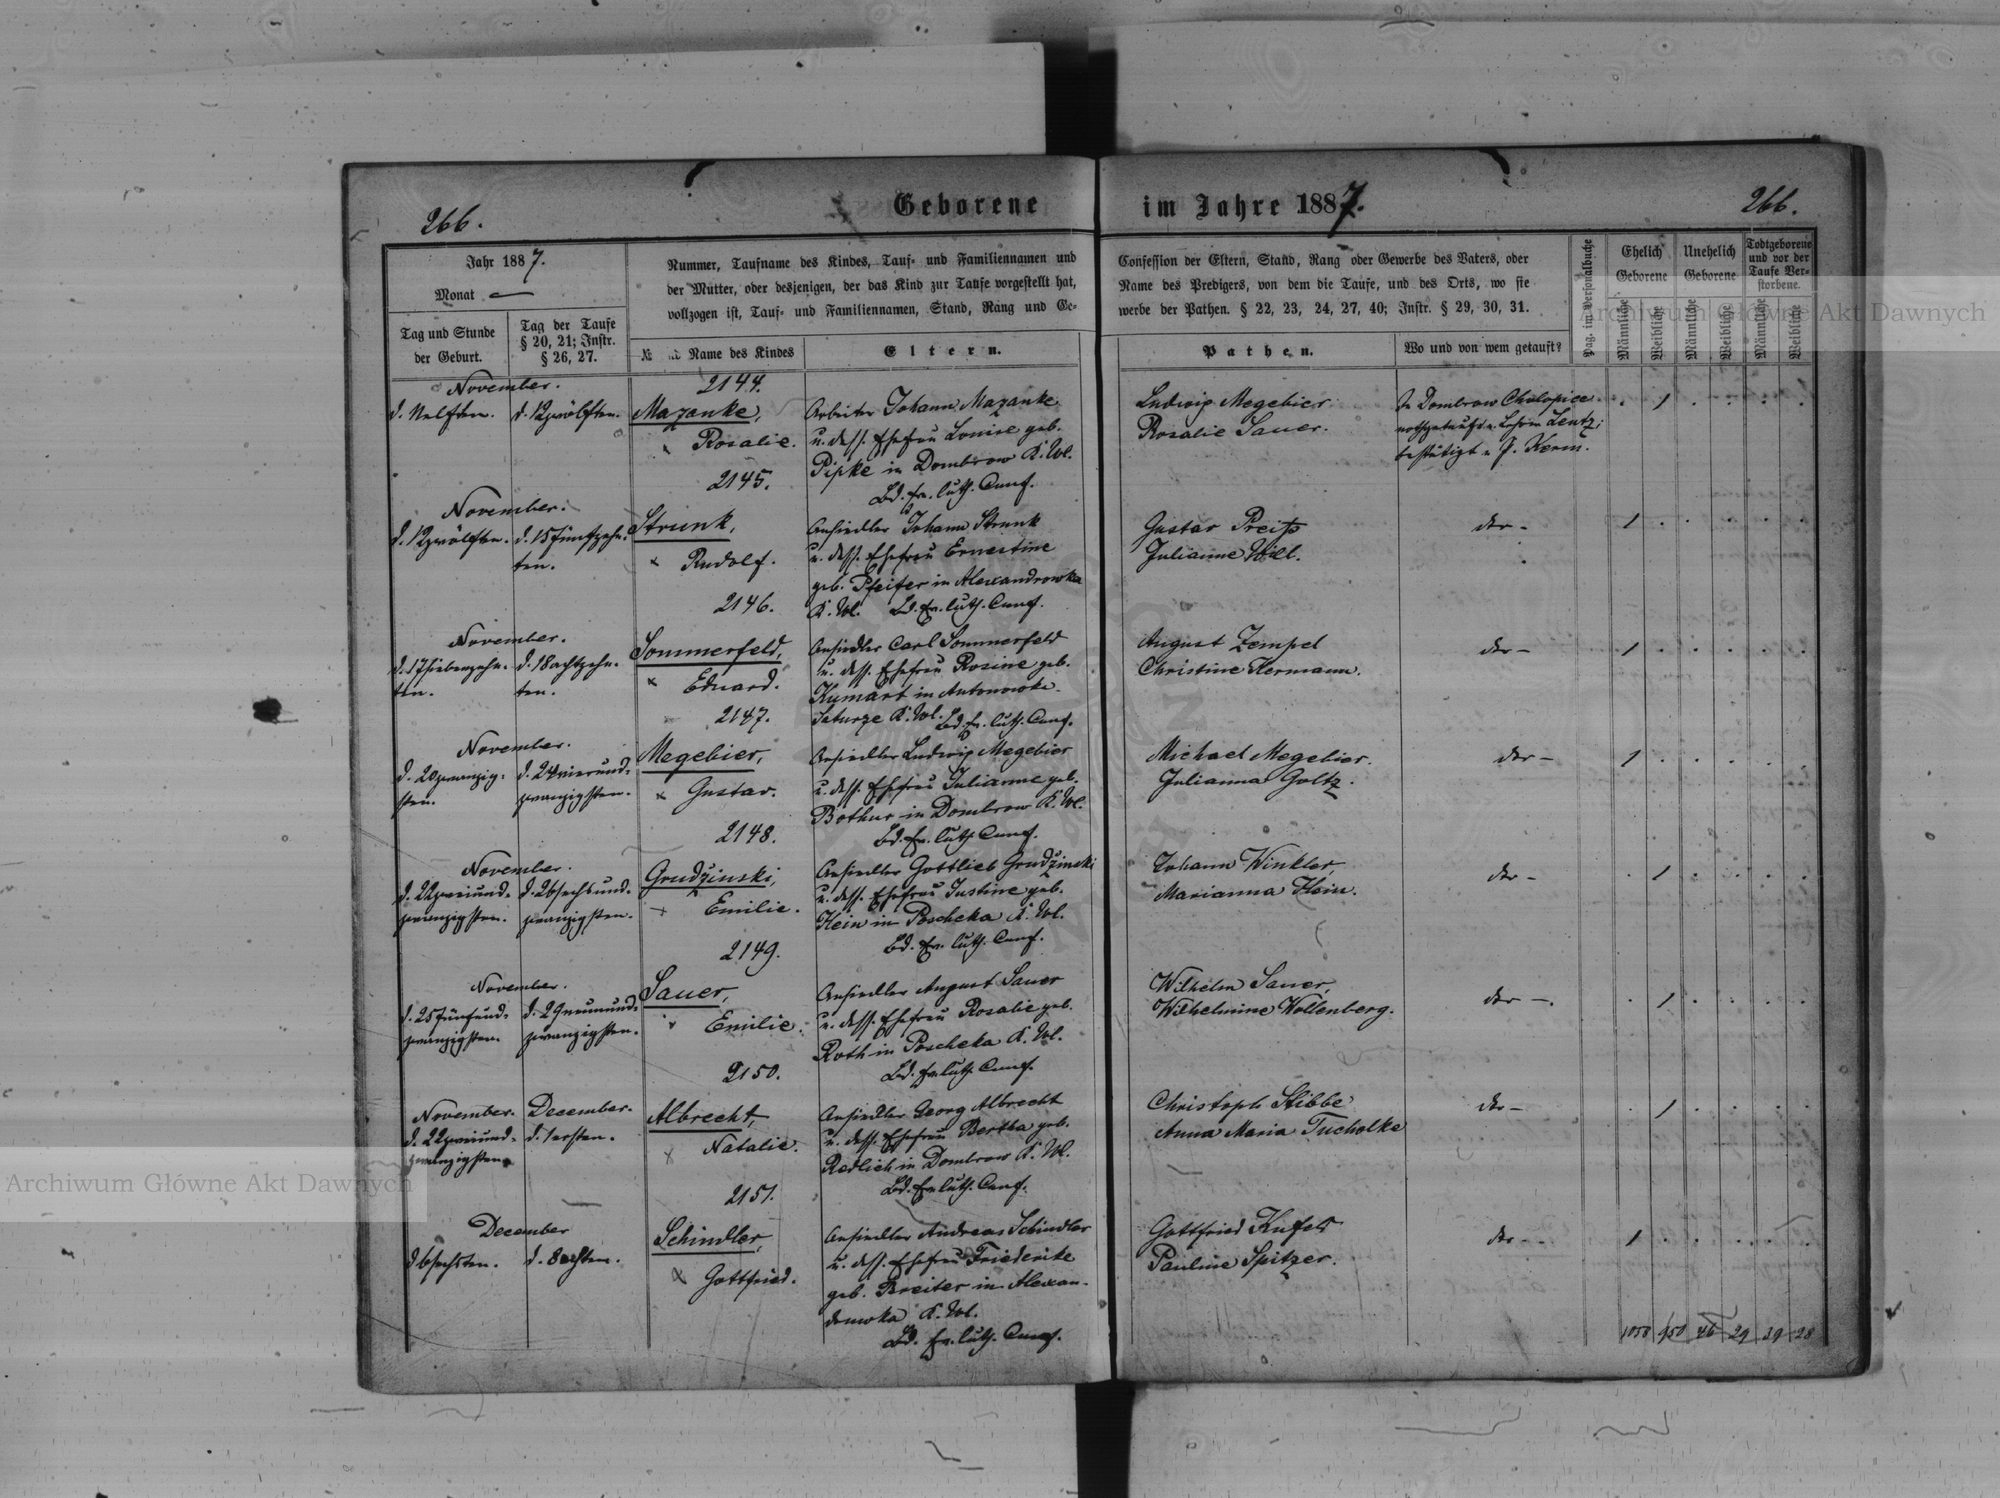 266.
Geborene
im Jahre 1887.
266.
Jahr 1887.
Monat —
Tag und Stunde
der Geburt.
Tag der Taufe
§ 20, 21; Instr.
§ 26, 27.
Nummer, Taufname des Kindes, Tauf- und Familiennamen und
der Mutter, oder desjenigen, der das Kind zur Taufe vorgestellt hat,
vollzogen ist, Tauf- und Familiennamen, Stand, Rang und Ge-
№ Name des Kindes
Eltern.
Confession der Eltern, Stand, Rang oder Gewerbe des Vaters, oder
Name des Predigers, von dem die Taufe, und des Orts, wo sie
werbe der Pathen. § 22, 23, 24, 27, 40; Instr. § 29, 30, 31.
Pathen.
Wo und von wem getauft?
Pag. im Personalbuche
Ehelich
Geborene
Unehelich
Geborene
Todtgeborene
und vor der
Taufe Ver-
storbene.
Männliche
Weibliche
Männliche
Weibliche
Männliche
Weibliche
November.
d. 11elften. d. 12zwölften.
2144.
Mazanke,
Rosalie.
Arbeiter Johann Mazanke
u. dess. Ehefrau Louise geb.
Pipke in Dombrow K. Wl.
Bd. ev. luth. Conf.
Ludwig Megebier
Rosalie Sauer.
In Dombrow Cholopicze
nothgetauft v. Lehrer Lentz;
bestätigt v. J. Kerm.
1
November.
d. 12zwölften. d. 15fünfzehn-
ten.
2145.
Strunk,
Rudolf.
Ansiedler Johann Strunk
u. dess. Ehefrau Ernestine
geb. Pfeifer in Alexandrowka
K. Wl. Bd. Ev. luth. Conf.
Gustav Preiß
Julianne Will.
der —
1
November.
d. 17siebenzehn-
ten.
d. 18achtzehn-
ten.
2146.
Sommerfeld,
Eduard.
Ansiedler Carl Sommerfeld
u. dess. Ehefrau Rosine geb.
Kumart in Antonowka
K. Wl. Bd. Ev. luth. Conf.
August Zempel
Christine Hermann.
der —
1
November.
d. 20zwanzig-
sten.
d. 24vierund-
zwanzigsten.
2147.
Megebier,
Gustav.
Ansiedler Ludwig Megebier
u. dess. Ehefrau Julianne geb.
Bothur in Dombrow K. Wl.
Bd. Ev. luth. Conf.
Michael Megebier.
Julianna Goltz.
der —
1
November.
d. 22zweiund-
zwanzigsten.
d. 26sechsund-
zwanzigsten.
2148.
Grudzinski,
Emilie.
Ansiedler Gottlieb Grudzinski
u. dess. Ehefrau Justine geb.
Hein in Poscheka K. Wl.
Bd. Ev. luth. Conf.
Johann Winkler,
Marianna Hein.
der —
1
November.
d. 25fünfund-
zwanzigsten.
d. 29neunund-
zwanzigsten.
2149.
Sauer,
Emilie.
Ansiedler August Sauer
u. dess. Ehefrau Rosalie geb.
Roth in Poscheka K. Wl.
Bd. Ev. luth. Conf.
Wilhelm Sauer,
Wilhelmine Wollenberg.
der —.
1
November. December.
d. 22zweiund-
zwanzigsten.
d. 1ersten.
2150.
Albrecht,
Natalie.
Ansiedler Georg Albrecht
u. dess. Ehefrau Bertha geb.
Redlich in Dombrow K. Wl.
Bd. Ev. luth. Conf.
Christoph Stibbe
Anna Maria Tucholke
der —
1
December
d. 6sechsten. d. 8achten.
2151.
Schindler,
Gottfried.
Ansiedler Andreas Schindler
u. dess. Ehefrau Friederike
geb. Breiter in Alexan-
drowka K. Wl.
Bd. Ev. luth. Conf.
Gottfried Knfelt
Pauline Spitzer.
der —
1
1058 950 46 29 39 28
Archiwum Główne Akt Dawnych
Archiwum Główne Akt Dawnych